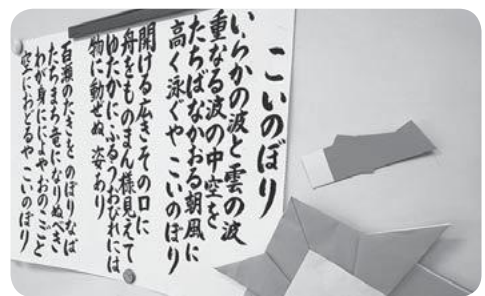 こいのぼり
いらかの波と雲の波
重なる波の中空を
たちばなかおる朝風に
高く泳ぐや こいのぼり
開ける広き その口に
舟をものまん様見えて
ゆたかに ふるうおびれには
物に動ぜぬ 姿あり
百瀬のたきを のぼりなば
たちまち竜に なりぬべき
わが身にによや おのこごと
空におどるや こいのぼり